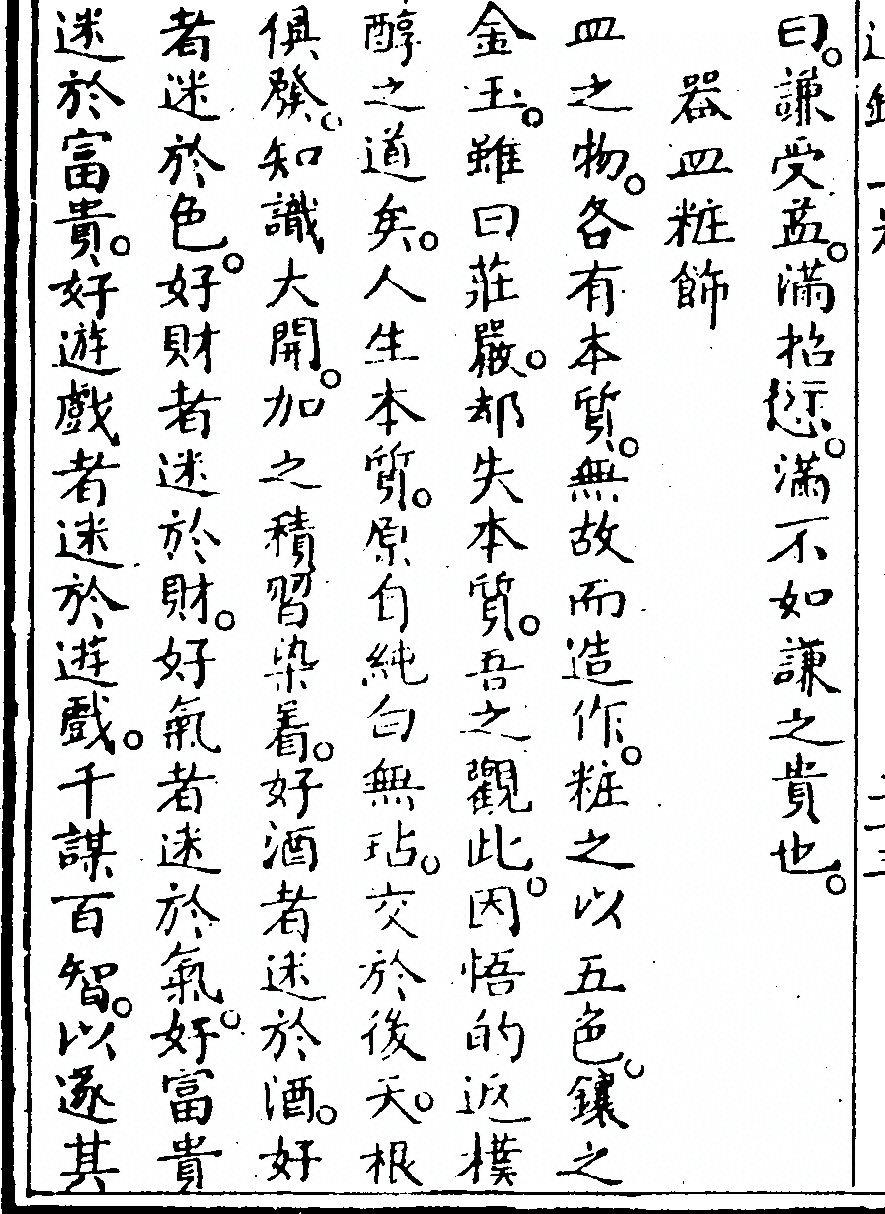 曰。謙受益。滿招愆。滿不如謙之貴也。
器皿粧飾
皿之物。各有本質。無故而造作。粧之以五色。鑲之
金玉。雖曰莊嚴。却失本質。吾之觀此。因悟的返樸
醇之道矣。人生本質。原自純白無玷。交於後天。根
俱發。知識大開。加之積習染着。好酒者迷於酒。好
者迷於色。好財者迷於財。好氣者迷於氣。好富貴
迷於富貴。好遊戲者迷於遊戲。千謀百智。以遂其